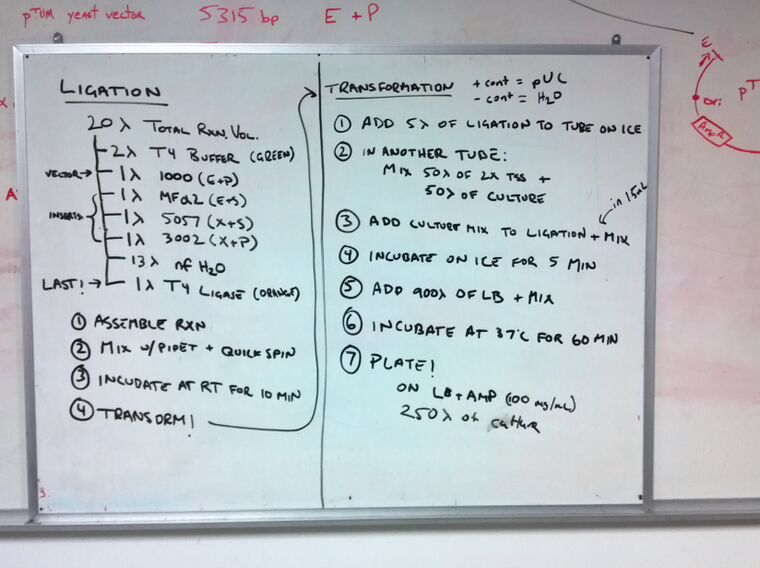 pTUM yeast vector 5315 bp E + P
LIGATION
20λ TOTAL RXN. VOL.
2λ T4 BUFFER (GREEN)
VECTOR → 1λ 1000 (E+P)
INSERTS
1λ MFα2 (E+S)
1λ 5057 (X+S)
1λ 3002 (X+P)
13λ nf H2O
LAST! → 1λ T4 LIGASE (ORANGE)
① ASSEMBLE RXN
② MIX W/PIPET + QUICK SPIN
③ INCUBATE AT RT FOR 10 MIN
④ TRANSORM!
3.
TRANSFORMATION + cont = pUC
- cont = H2O
① ADD 5λ OF LIGATION TO TUBE ON ICE
② IN ANOTHER TUBE:
MIX 50λ OF 2X TSS +
50λ OF CULTURE
in 15mL
③ ADD CULTURE MIX TO LIGATION + MIX
④ INCUBATE ON ICE FOR 5 MIN
⑤ ADD 900λ OF LB + MIX
⑥ INCUBATE AT 37°C FOR 60 MIN
⑦ PLATE!
ON LB + AMP (100 mg/mL)
250λ of culture
E
ori pT
AmpR